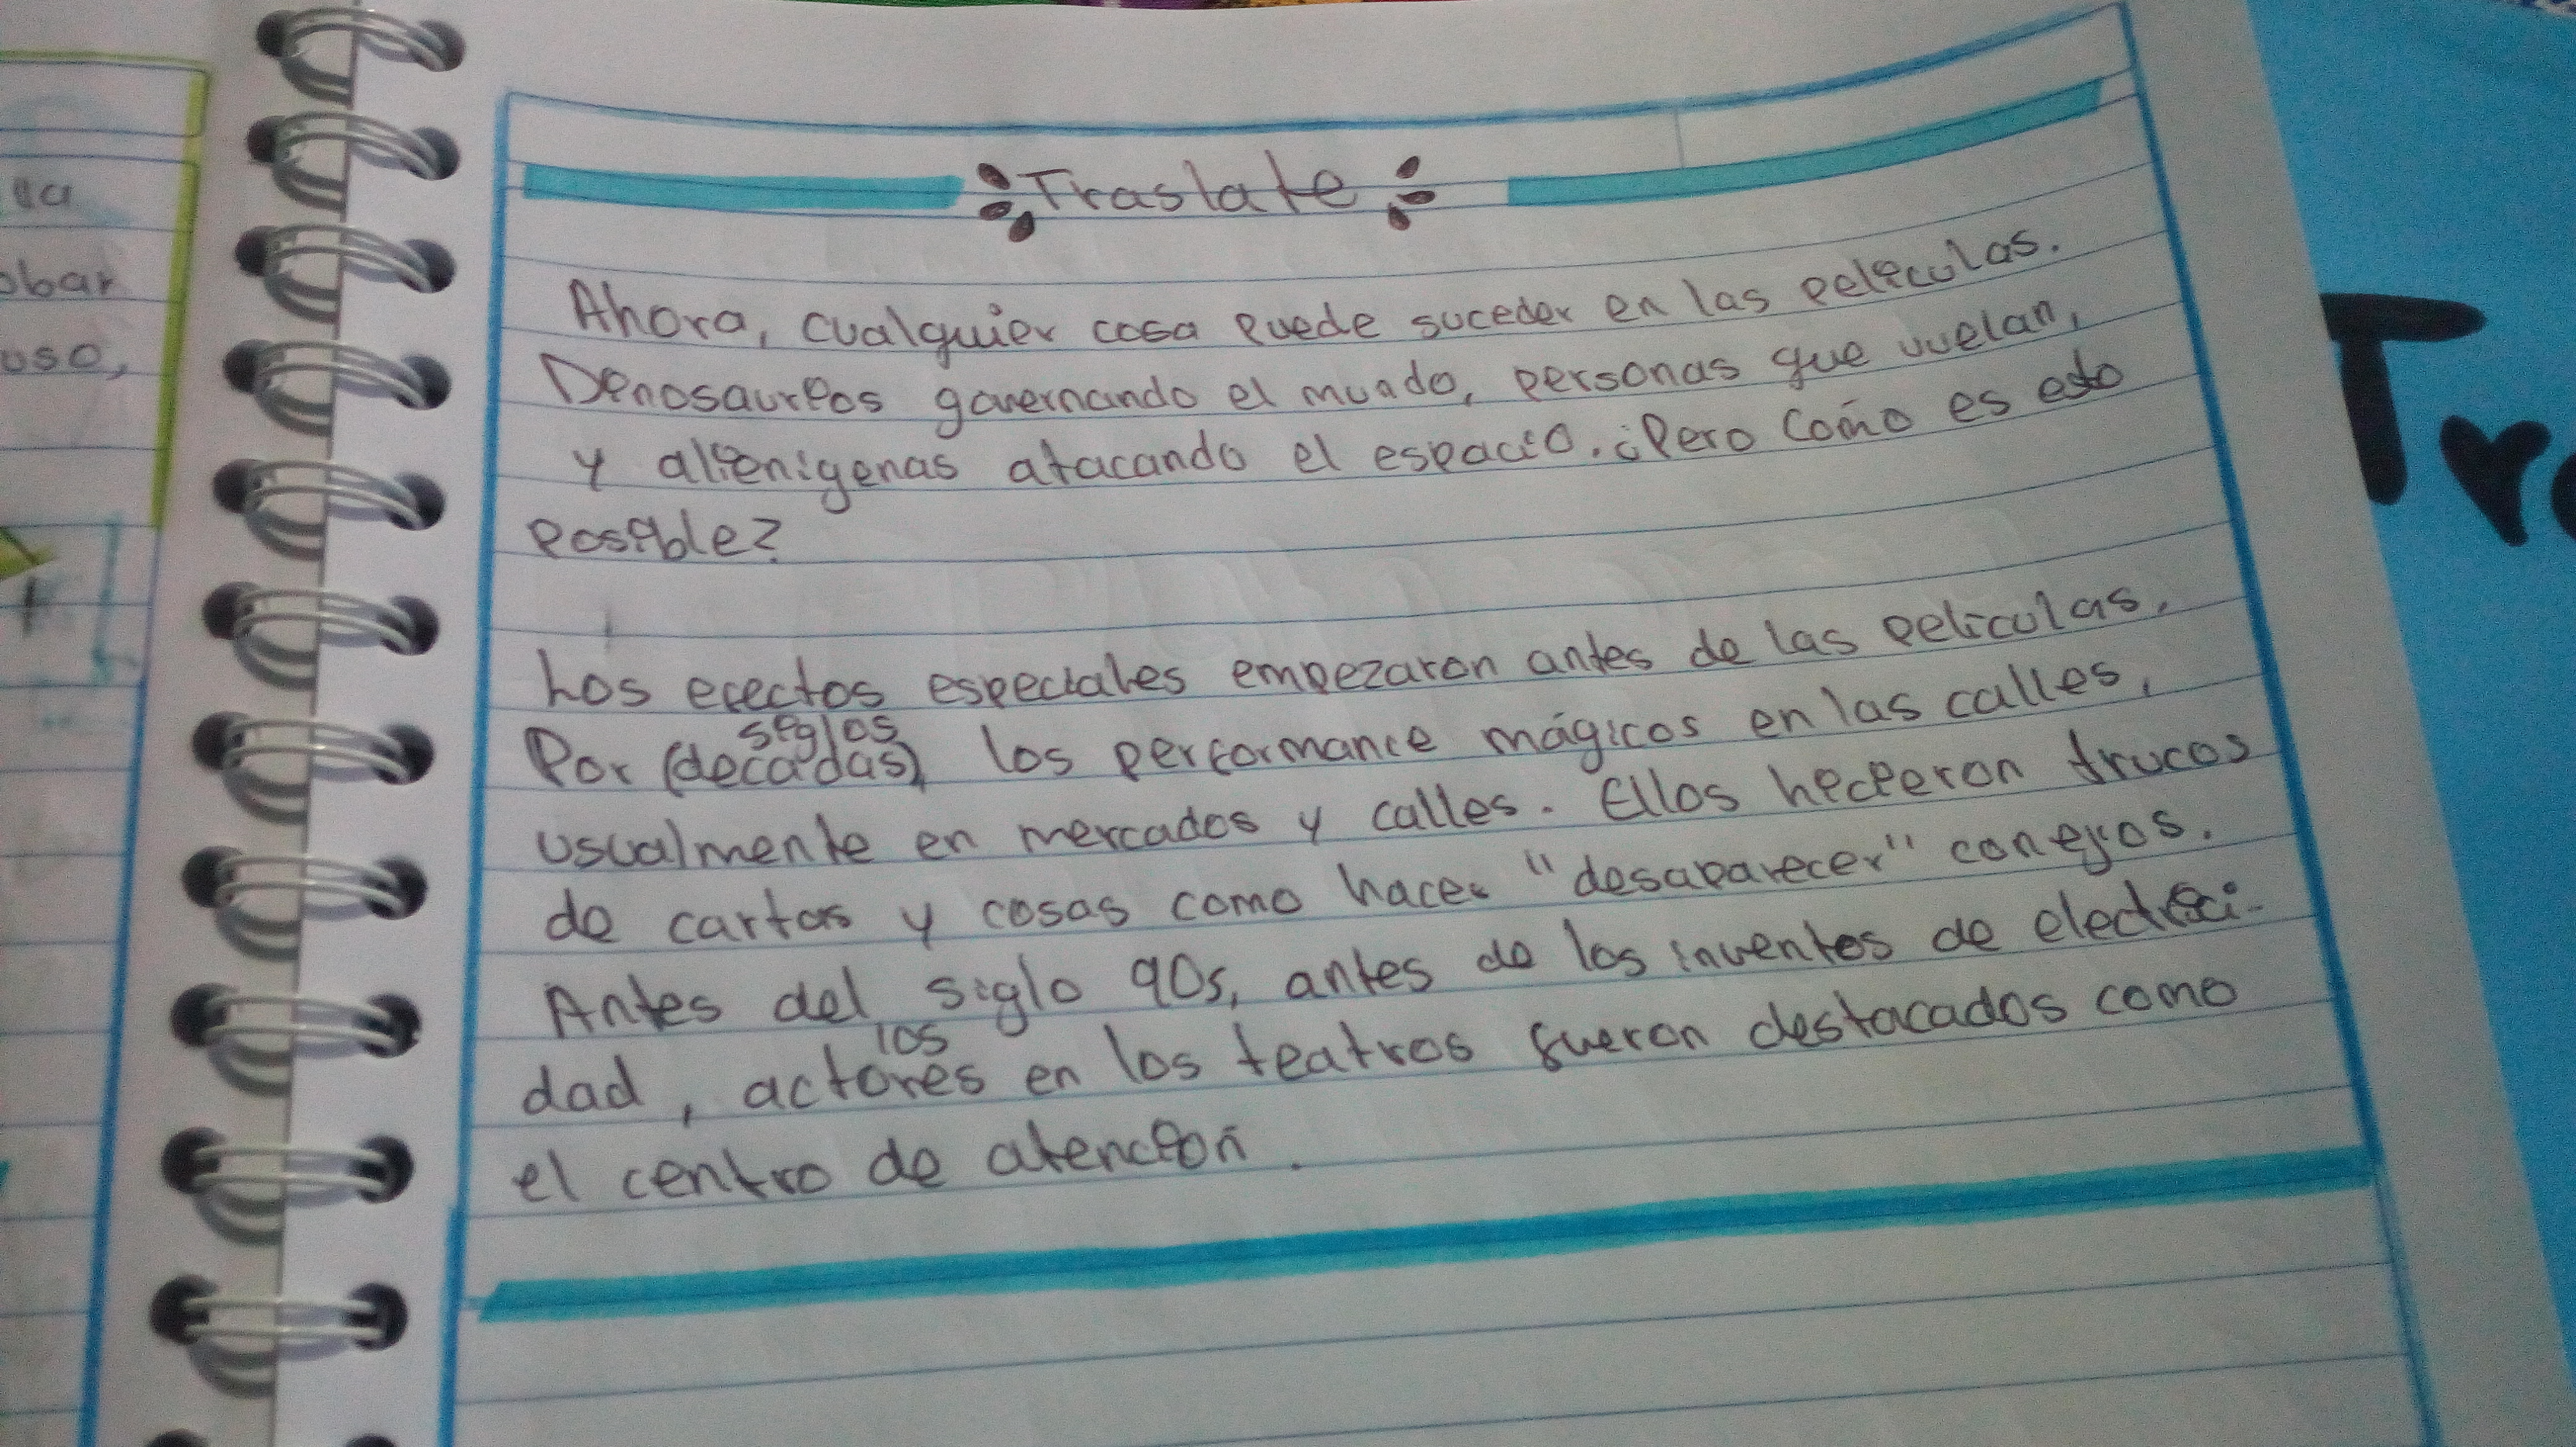 Traslate
Ahora, cualquier cosa puede suceder en las peliculas.
Dinosaurios governando el mundo, personas que vuelan,
y alienigenas atacando el espacio. ¿Pero cómo es esto
posible?
Los efectos especiales empezaron antes de las peliculas,
siglos
Por (decadas), los performance mágicos en las calles,
usualmente en mercados y calles. Ellos hicieron trucos
de cartas y cosas como hacer "desaparecer" conejos.
Antes del siglo 90s, antes de los inventos de electrici-
los
dad, actores en los teatros fueron destacados como
el centro de atención.
va
obar
uso,
Tr